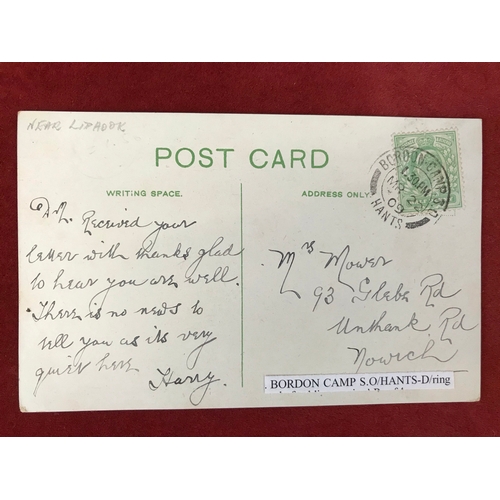 NEAR LIPHOOK
POST CARD
WRITING SPACE.
ADDRESS ONLY
BORDON-CAMP S.O.
MR 2
09
HANTS
Received your
letter with thanks glad
to hear you are well.
There is no news to
tell you as its very
quiet here
Harry.
Mrs Mower
93 Glebe Rd
Unthank Rd
Norwich
BORDON CAMP S.O/HANTS-D/ring